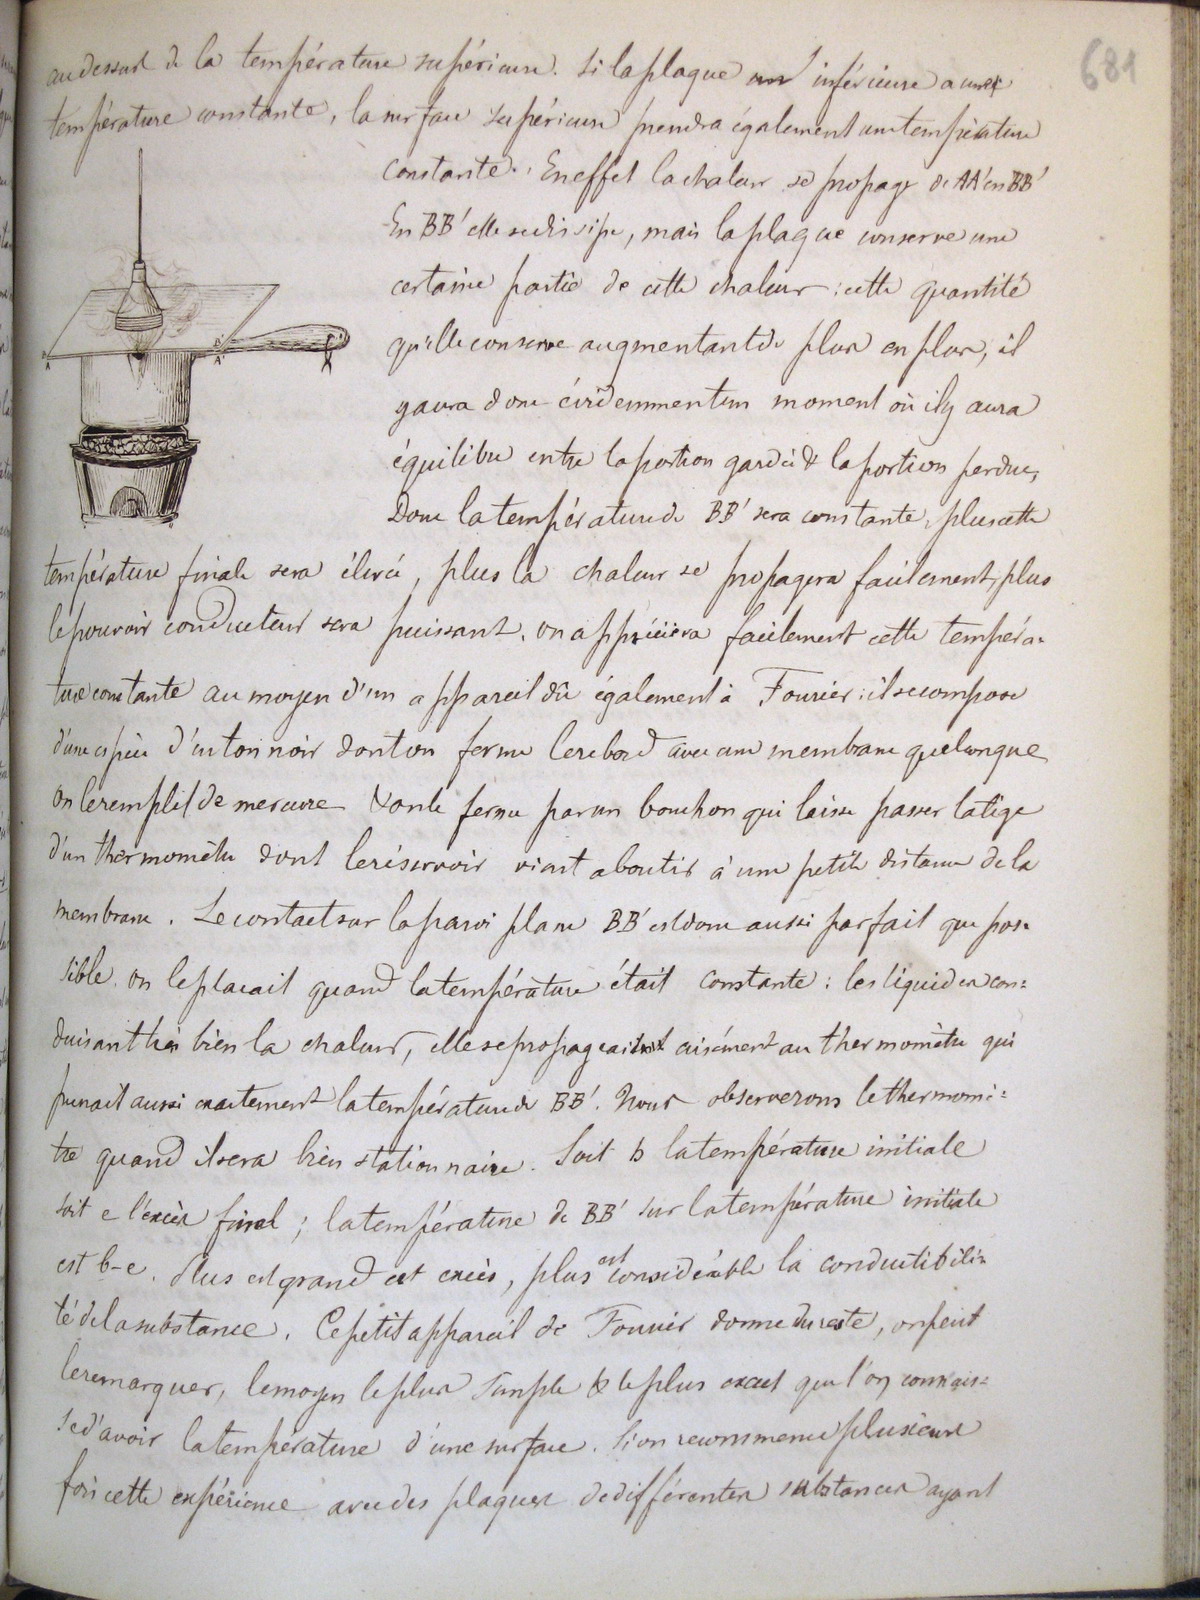 681
au dessus de la température supérieure. Si la plaque inférieure a une
température constante, la surface supérieure prendra également une température
constante. En effet la chaleur se propage de AA' en BB'
En BB' elle se dissipe, mais la plaque conserve une
certaine partie de cette chaleur : cette quantité
qu'elle conserve augmentant de plus en plus, il
y aura donc évidemment un moment où il y aura
équilibre entre la portion gardée & la portion perdue,
Donc la température de BB' sera constante, plus cette
température finale sera élevée, plus la chaleur se propagera facilement, plus
le pouvoir conducteur sera puissant. on appréciera facilement cette tempéra-
ture constante au moyen d'un appareil dû également à Fourier : il se compose
d'une espèce d'entonnoir dont on ferme le rebord avec une membrane quelconque
on le remplit de mercure & on le ferme par un bouchon qui laisse passer la tige
d'un thermomètre dont le réservoir vient aboutir à une petite distance de la
membrane. Le contact sur la paroi plane BB' est donc aussi parfait que pos-
sible. on le plaçait quand la température était constante : les liquides con-
duisant très bien la chaleur, elle se propageait aisément au thermomètre qui
prenait aussi exactement la température de BB'. Nous observerons le thermomè-
tre quand il sera bien stationnaire. Soit b la température initiale
soit e l'excès final ; la température de BB' sur la température initiale
est b-e. Plus est grand cet excès, plus est considérable la conductibili-
té de la substance. Ce petit appareil de Fourier donne du reste, on peut
le remarquer, le moyen le plus simple & le plus exact que l'on connais-
se d'avoir la température d'une surface. Si on recommence plusieurs
fois cette expérience avec des plaques de différentes substances ayant
A
B
A'
B'